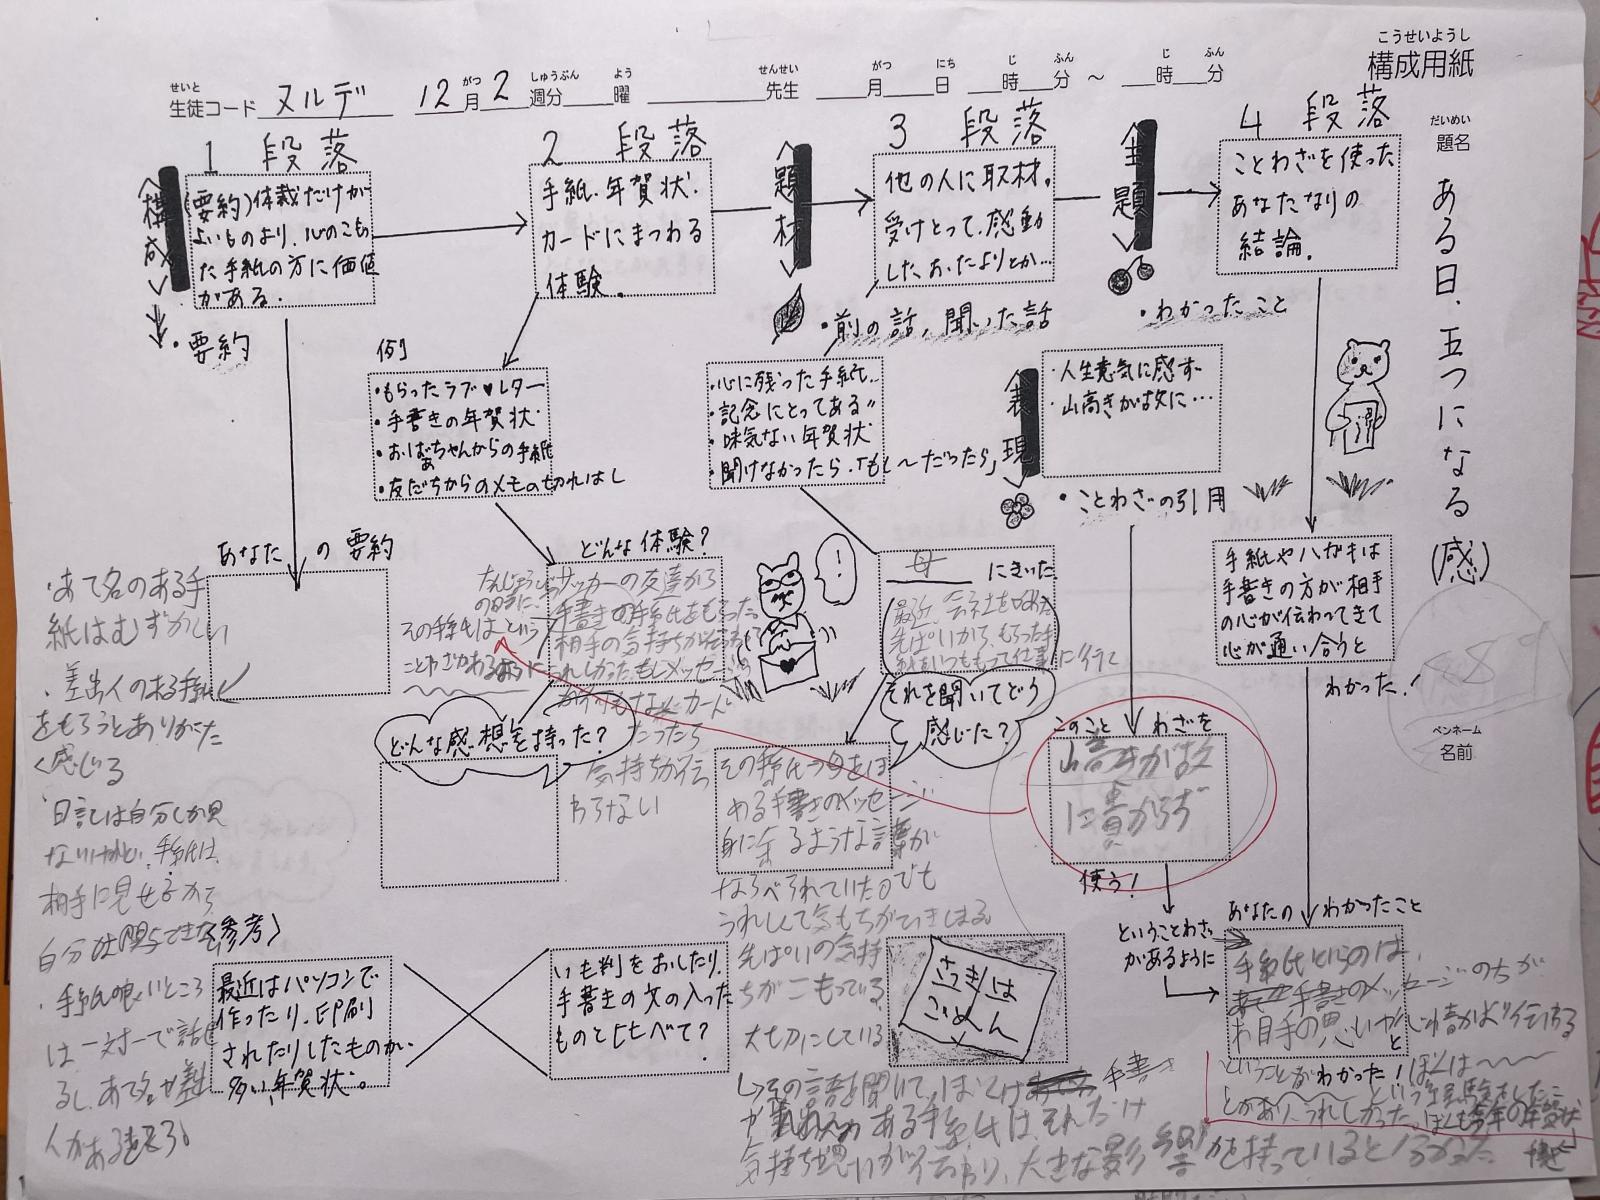 こうせいようし
構成用紙
せいと
生徒コード ヌルデ 12月2週分 曜 先生 月 日 時 分 ～ 時 分
がつ しゅうぶん よう せんせい がつ にち じ ふん じ ふん
だいめい
題名
ある日、五つになる(感)
ペンネーム
名前
1 段落
〈構成〉
(要約)体裁だけが
よいものより、心のこもっ
た手紙の方に価値
がある。
・要約
2 段落
手紙、年賀状、
カードにまつわる
体験。
〈題材〉
3 段落
他の人に取材。
受けとって、感動
した、おたよりとか…
・前の話、聞いた話
〈主題〉
・わかったこと
4 段落
ことわざを使った
あなたなりの
結論。
例
・もらったラブ♥レター
・手書きの年賀状
・おばあちゃんからの手紙
・友だちからのメモの切れはし
・心に残った手紙
・記念にとってある〃
・味気ない年賀状
・聞けなかったら、「もし～だったら」
〈表現〉
・人生意気に感ず
・山高きが故に…
・ことわざの引用
あなたの要約
・あて名のある手
紙はむずかしい
・差出人のある手紙
をもらうとありがた
く感じる
日記は自分しか見
ないけれど、手紙は
相手に見せるから
・手紙の良いところ
は一対一で話せ
どんな体験?
たんじょうびの日に、
サッカーの友達から
手書きの手紙をもらった。
相手の気持ちが伝わって
うれしかった。もしメッセージ
が何もないカード
だったら
気持ちが伝
わらない
その手紙は という
ことわざがあるように
どんな感想を持った?
!
母 にきいた
最近、会社をやめた
先ぱいから、もらった手
紙をいつももって仕事に行く
それを聞いてどう
感じた?
その手紙
める手書きのメッセージ
身に余るような言葉が
ならべられていた。とても
うれしくて気もちが
先ぱいの気持
ちがこもっている。
大切にしている
手紙やハガキは
手書きの方が相手
の心が伝わってきて
心が通い合うと
わかった!
このことわざを
山高きが故
に貴からず
使う!
ということわざ
があるように
あなたのわかったこと
手紙というのは、
手書きのメッセージのほうが
相手の思いが
ということがわかった! ぼくは～～
という経験をしたこ
とがあり、うれしかった。ぼくも今年の年賀状
〈参考〉
最近はパソコンで
作ったり、印刷
されたりしたものが
多い年賀状。
いも判をおしたり、
手書きの文の入った
ものとくらべて?
さっきは
ごめん
その言語を聞いて、ぼくは 手書き
ある手紙は、それだけ
気持ちや思いが伝わり、大きな影響力を持っていると